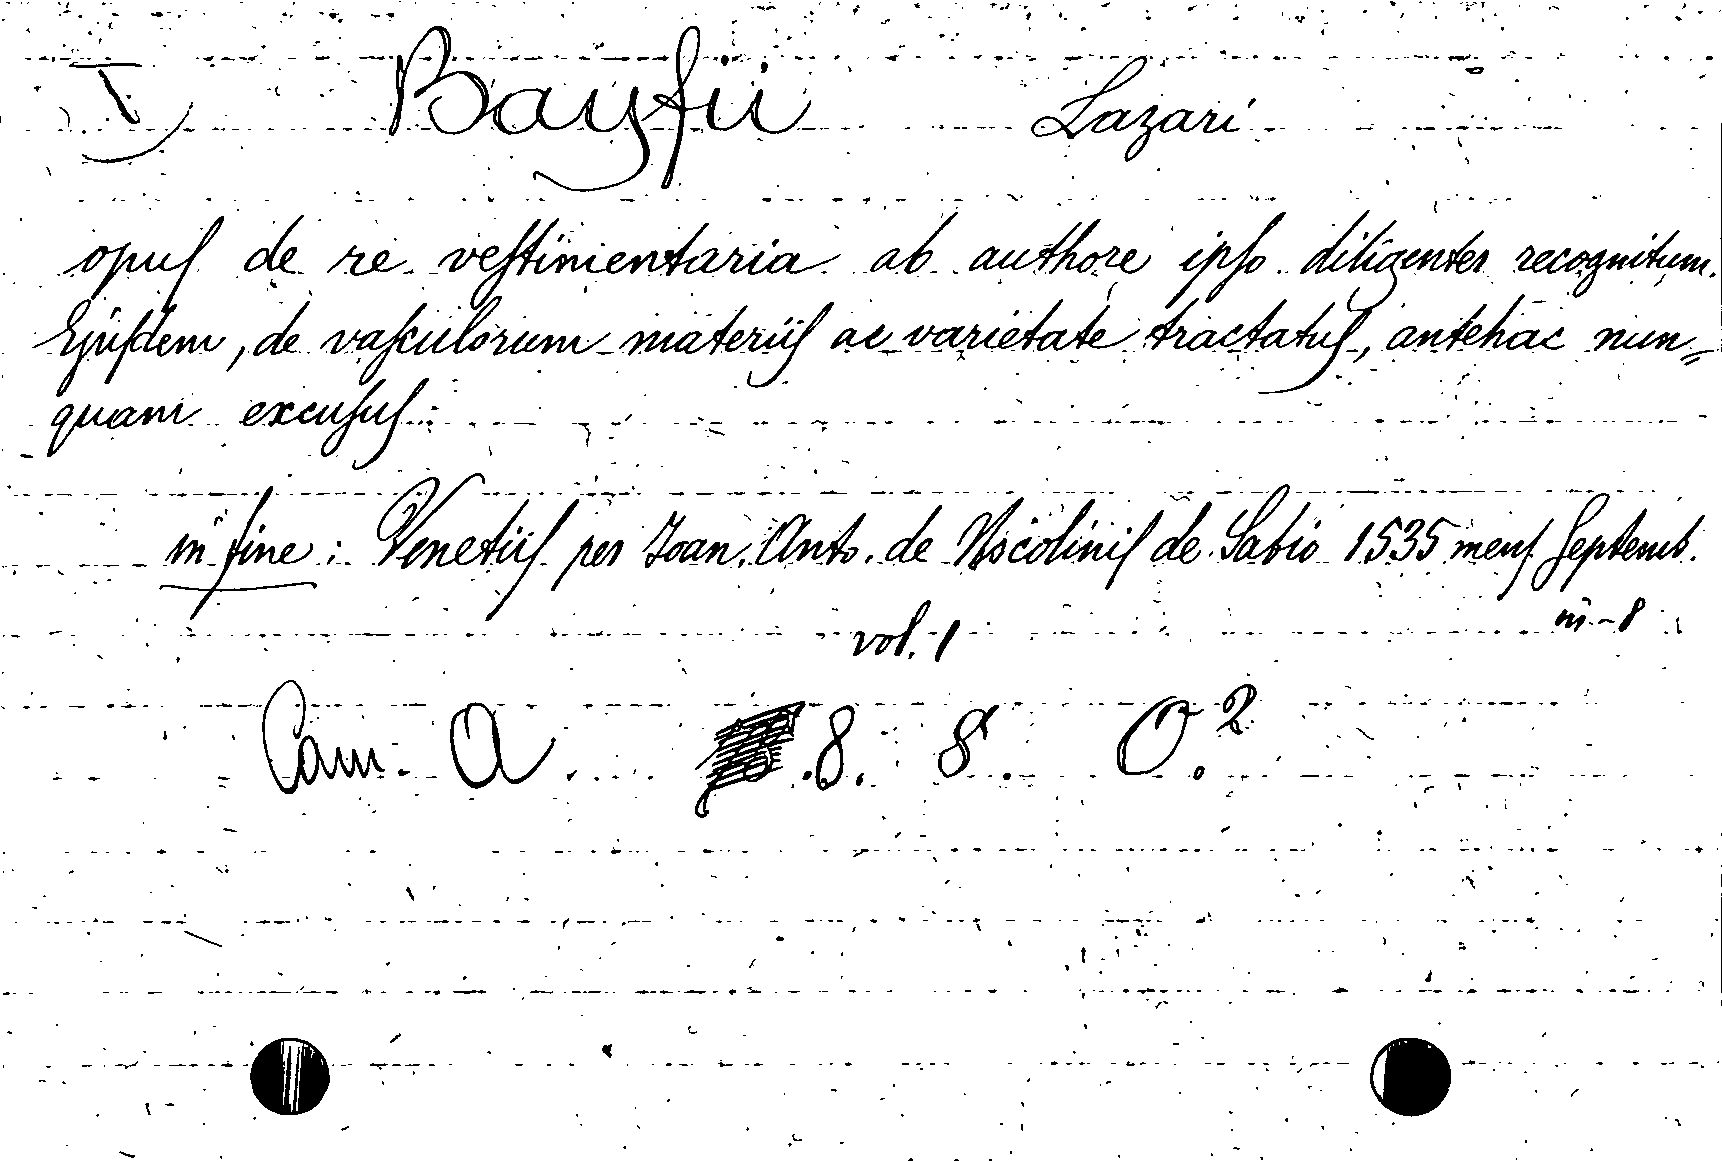 I Bayfii Lazari
opuſ de re veſtimentaria ab authore ipſo diligenter recognitum.
Ejuſdem, de vaſculorum materiiſ ac varietate tractatuſ, antehac nun=
quam excuſuſ:
in fine: Venetiiſ per Joan. Anto. de Nicoliniſ de Sabio 1535 menſ Septemb.
in-8
vol. 1
Cam. A .8. 8. O.2